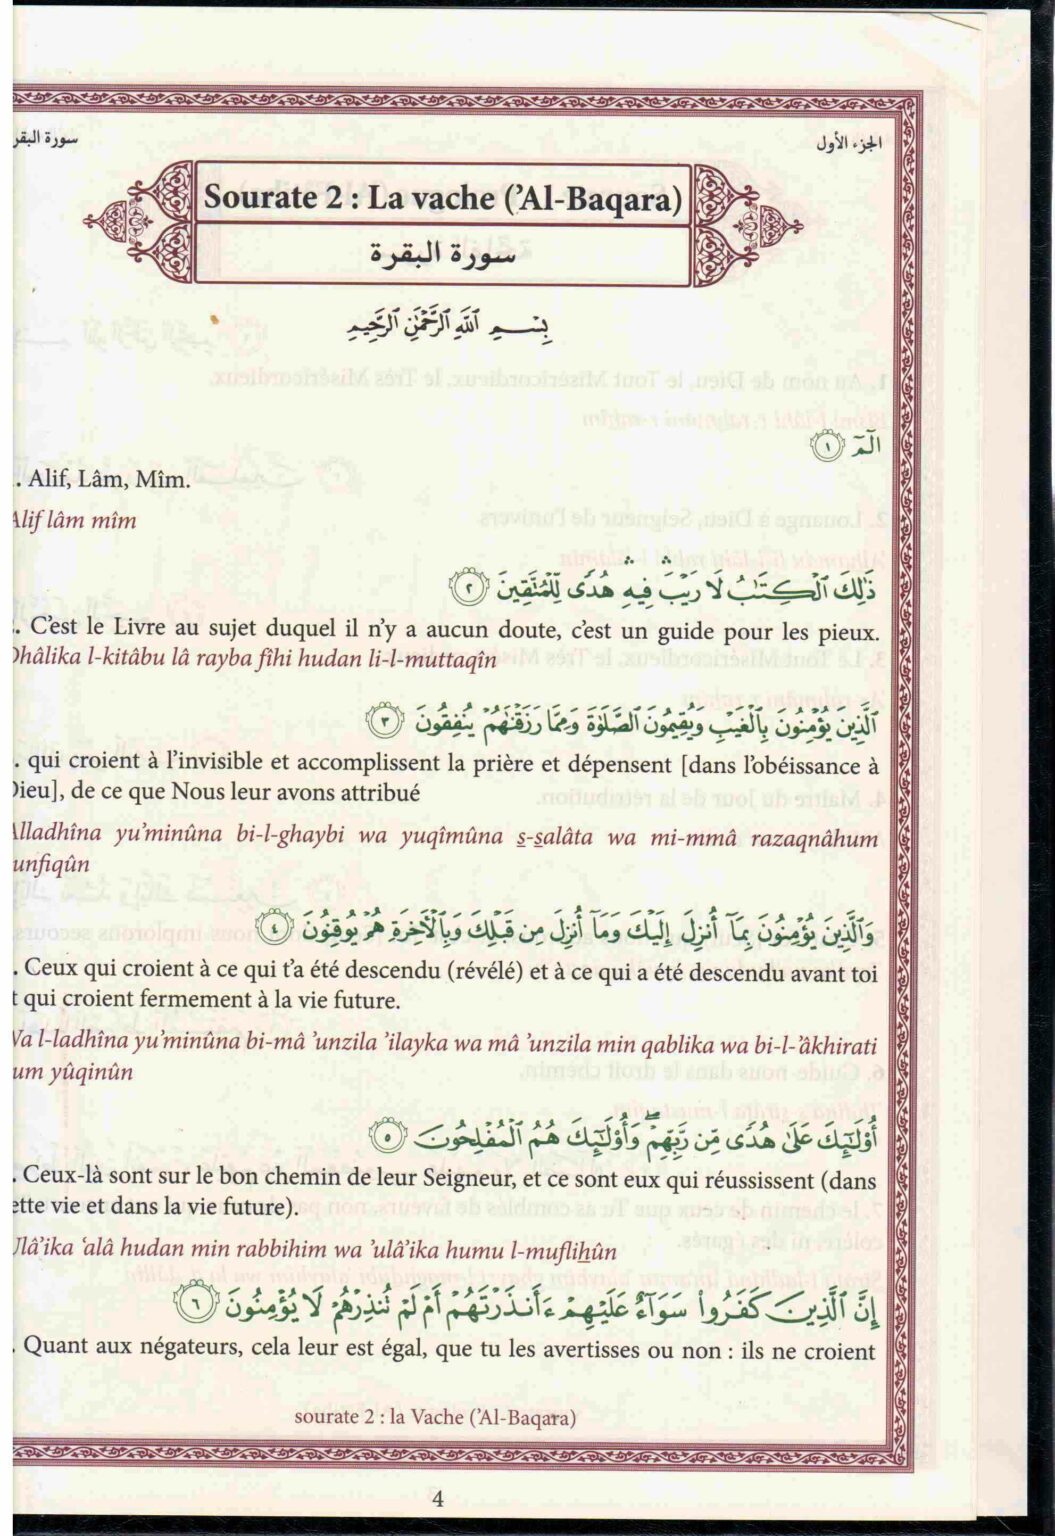 الجزء الأول
سورة البقر
Sourate 2 : La vache (’Al-Baqara)
سورة البقرة
بِسْمِ ٱللَّهِ ٱلرَّحْمَٰنِ ٱلرَّحِيمِ
الٓمٓ ١
. Alif, Lâm, Mîm.
Alif lâm mîm
ذَٰلِكَ ٱلْكِتَٰبُ لَا رَيْبَ ۛ فِيهِ ۛ هُدًى لِّلْمُتَّقِينَ ٢
. C’est le Livre au sujet duquel il n’y a aucun doute, c’est un guide pour les pieux.
Dhâlika l-kitâbu lâ rayba fîhi hudan li-l-muttaqîn
ٱلَّذِينَ يُؤْمِنُونَ بِٱلْغَيْبِ وَيُقِيمُونَ ٱلصَّلَوٰةَ وَمِمَّا رَزَقْنَٰهُمْ يُنفِقُونَ ٣
. qui croient à l’invisible et accomplissent la prière et dépensent [dans l’obéissance à
Dieu], de ce que Nous leur avons attribué
Alladhîna yu’minûna bi-l-ghaybi wa yuqîmûna s-salâta wa mi-mmâ razaqnâhum
unfiqûn
وَٱلَّذِينَ يُؤْمِنُونَ بِمَآ أُنزِلَ إِلَيْكَ وَمَآ أُنزِلَ مِن قَبْلِكَ وَبِٱلْءَاخِرَةِ هُمْ يُوقِنُونَ ٤
. Ceux qui croient à ce qui t’a été descendu (révélé) et à ce qui a été descendu avant toi
t qui croient fermement à la vie future.
Wa l-ladhîna yu’minûna bi-mâ ’unzila ’ilayka wa mâ ’unzila min qablika wa bi-l-’âkhirati
um yûqinûn
أُو۟لَٰٓئِكَ عَلَىٰ هُدًى مِّن رَّبِّهِمْ ۖ وَأُو۟لَٰٓئِكَ هُمُ ٱلْمُفْلِحُونَ ٥
. Ceux-là sont sur le bon chemin de leur Seigneur, et ce sont eux qui réussissent (dans
ette vie et dans la vie future).
Ulâ’ika ‘alâ hudan min rabbihim wa ’ulâ’ika humu l-muflihûn
إِنَّ ٱلَّذِينَ كَفَرُوا۟ سَوَآءٌ عَلَيْهِمْ ءَأَنذَرْتَهُمْ أَمْ لَمْ تُنذِرْهُمْ لَا يُؤْمِنُونَ ٦
. Quant aux négateurs, cela leur est égal, que tu les avertisses ou non : ils ne croient
sourate 2 : la Vache (’Al-Baqara)
4